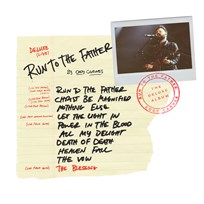 DELUXE
(LIVE)
RUN TO THE FATHER
By CODY CARNES
RUN TO THE FATHER
CHRIST BE MAGNIFIED
NOTHING ELSE
LET THE LIGHT IN
POWER IN THE BLOOD
ALL MY DELIGHT
DEATH OF DEATH
HEAVEN FALL
THE VOW
THE BLESSING
RUN TO THE FATHER
THE DELUXE ALBUM
CODY CARNES